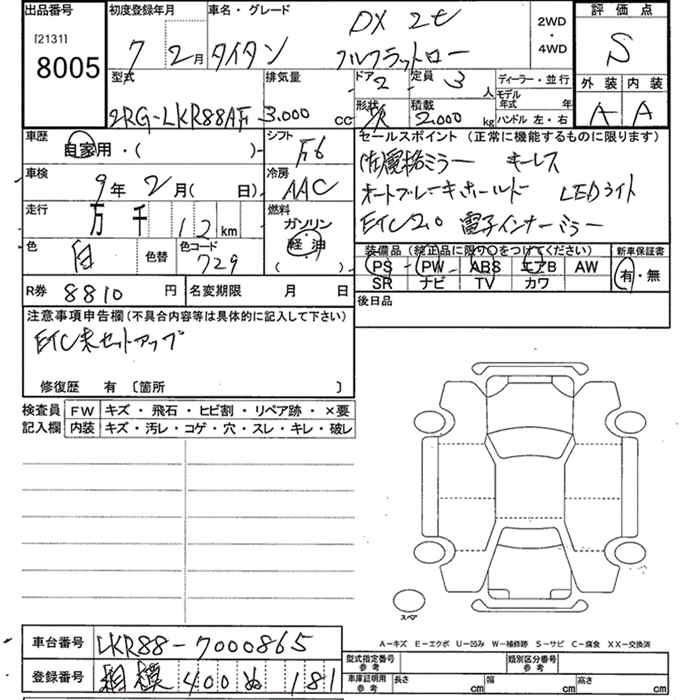 出品番号 初度登録年月 車名・グレード 2WD・4WD 評価点
[2131] 8005 7 2月 タイタン DX 2t フルフラットロー S
型式 排気量 ドア 2 定員 3人 ディーラー・並行 外装 内装
2RG-LKR88AF 3,000 cc 形状 積載 2,000 kg モデル年式 年 ハンドル 左・右 A A
車歴 自家用・( ) シフト F6 セールスポイント (正常に機能するものに限ります)
車検 9年 2月( 日) 冷房 AAC 電格ミラー キーレス
オートブレーキホールド LEDライト
走行 万 千 12 km 燃料 ガソリン 軽油 ( ) ETC2.0 電子インナーミラー
色 白 色替 色コード 729 装備品 (純正品に限り○をつけてください) 新車保証書
PS PW ABS エアB AW 有・無
SR ナビ TV カワ
R券 8810 円 名変期限 月 日 後日品
注意事項申告欄(不具合内容等は具体的に記入して下さい)
ETC未セットアップ
修復歴 有 〔箇所 〕
検査員 FW キズ・飛石・ヒビ割・リペア跡・×要
記入欄 内装 キズ・汚レ・コゲ・穴・スレ・キレ・破レ
スペア
A-キズ E-エクボ U-凹み W-補修跡 S-サビ C-腐食 XX-交換済
車台番号 LKR88-7000865 型式指定番号 参考 類別区分番号 参考
登録番号 相模 400 ぬ 181 車庫証明用 参考 長さ cm 幅 cm 高さ cm